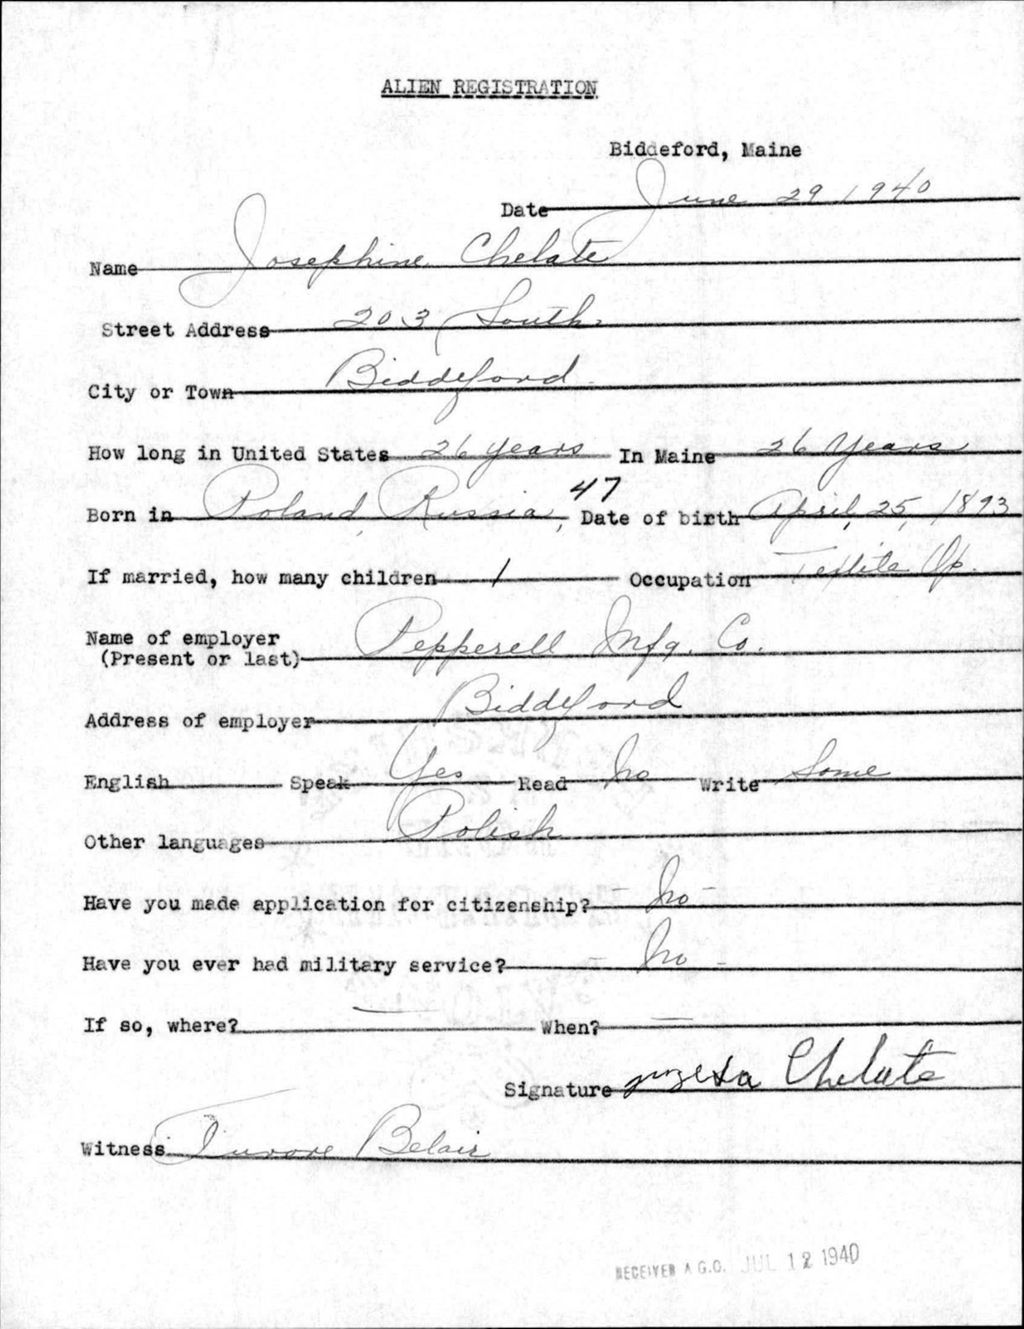 ALIEN REGISTRATION
Biddeford, Maine
Date June 29, 1940
Name Josephine Chelate
Street Address 203 South
City or Town Biddeford
How long in United States 26 years In Maine 26 Years
Born in Poland, Russia, 47 Date of birth April, 25, 1893
If married, how many children 1 Occupation Op.
Name of employer
(Present or last) Pepperell Mfg. Co.
Address of employer Biddeford
English Speak Yes Read No Write Some
Other languages Polish
Have you made application for citizenship? - No -
Have you ever had military service? - No -
If so, where? — When? —
Signature Chelate
Witness Belair
RECEIVED A.G.O. JUL 12 1940